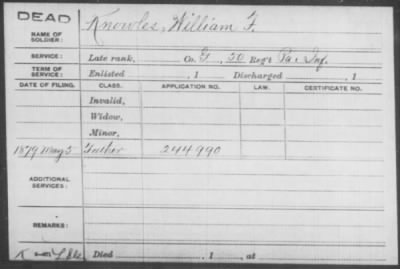 DEAD
NAME OF SOLDIER: Knowles, William F.
SERVICE: Late rank, Co. G, 50 Reg't Pa. Inf.
TERM OF SERVICE: Enlisted , 1 Discharged , 1
DATE OF FILING. CLASS. APPLICATION NO. LAW. CERTIFICATE NO.
Invalid,
Widow,
Minor,
1879 May 5 Father 244990
ADDITIONAL SERVICES:
REMARKS:
Died , 1 , at